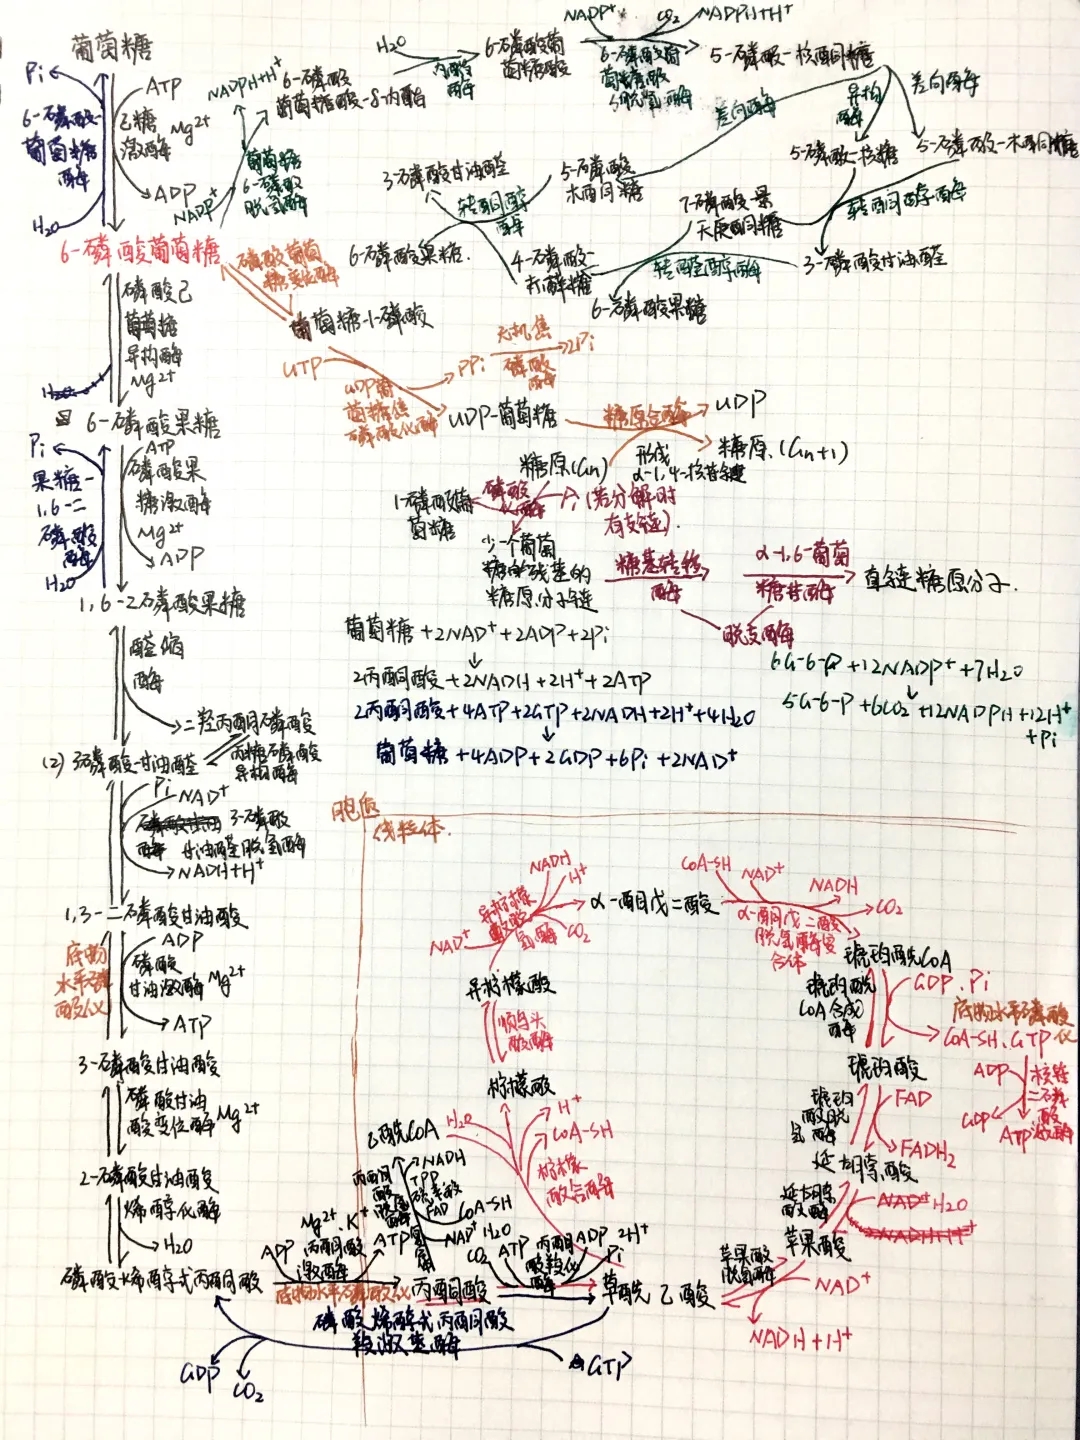 葡萄糖
Pi
ATP
6-磷酸-
葡萄糖
酶
己糖
激酶
Mg2+
ADP
H2O
NADP+
NADPH+H+
葡萄糖
6-磷酸
脱氢酶
6-磷酸
葡萄糖酸-δ-内酯
H2O
内酯
酶
6-磷酸葡
萄糖酸
NADP+
CO2
NADPH+H+
6-磷酸葡
萄糖酸
脱氢酶
5-磷酸-核酮糖
差向酶
异构
酶
差向酶
5-磷酸-核糖
5-磷酸-木酮糖
3-磷酸甘油醛
5-磷酸
木酮糖
转酮醇
酶
7-磷酸-景
天庚酮糖
转酮醇酶
6-磷酸果糖
4-磷酸-
赤藓糖
转醛醇酶
3-磷酸甘油醛
6-磷酸果糖
6-磷酸葡萄糖
磷酸葡萄
糖变位酶
葡萄糖-1-磷酸
磷酸己
葡萄糖
异构酶
Mg2+
UTP
UDP葡
萄糖焦
磷酸化酶
PPi
无机焦
磷酸
酶
2Pi
UDP-葡萄糖
糖原合酶
UDP
糖原(Gn+1)
形成
α-1,4-糖苷键
6-磷酸果糖
Pi
ATP
果糖-
1,6-二
磷酸
酶
磷酸果
糖激酶
Mg2+
ADP
H2O
糖原(Gn)
1-磷酸葡
萄糖
磷酸
化酶
Pi(若分解时
有支链).
少一个葡萄
糖残基的
糖原分子链
糖基转移
酶
α-1,6-葡萄
糖苷酶
直链糖原分子.
脱支酶
1,6-2磷酸果糖
醛缩
酶
二羟丙酮磷酸
丙糖磷酸
异构酶
葡萄糖+2NAD++2ADP+2Pi
2丙酮酸+2NADH+2H++2ATP
2丙酮酸+4ATP+2GTP+2NADH+2H++4H2O
葡萄糖+4ADP+2GDP+6Pi+2NAD+
6G-6-P+12NADP++7H2O
5G-6-P+6CO2+12NADPH+12H+
+Pi
(2)3磷酸-甘油醛
Pi
NAD+
3-磷酸
甘油醛脱氢酶
NADH+H+
1,3-二磷酸甘油酸
底物
水平磷
酸化
ADP
磷酸
甘油激酶
Mg2+
ATP
3-磷酸甘油酸
磷酸甘油
酸变位酶
Mg2+
2-磷酸甘油酸
烯醇化酶
H2O
磷酸烯醇式丙酮酸
胞液
线粒体.
NADH
H+
异柠檬
酸脱
氢酶
NAD+
CO2
α-酮戊二酸
CoA-SH
NAD+
NADH
CO2
α-酮戊二酸
脱氢酶复
合体
异柠檬酸
顺乌头
酸酶
柠檬酸
琥珀酰CoA
琥珀酰
CoA合成
酶
GDP.Pi
底物水平磷酸
化
CoA-SH.GTP
琥珀酸
ADP
核苷
二磷
酸
激酶
GDP
ATP
琥珀
酸脱
氢酶
FAD
FADH2
延胡索酸
延胡索
酸酶
H2O
苹果酸
乙酰CoA
H2O
H+
CoA-SH
柠檬
酸合酶
丙酮
酸
脱氢
酶
NADH
TPP
硫辛酸
FAD
CoA-SH
NAD+
Mg2+.K+
ADP
丙酮酸
激酶
ATP
底物水平磷酸化
丙酮酸
CO2
H2O
ATP
丙酮
酸羧化
酶
ADP
2H+
Pi
草酰乙酸
苹果酸
脱氢酶
NAD+
NADH+H+
磷酸烯醇式丙酮酸
羧激酶
GDP
CO2
GTP